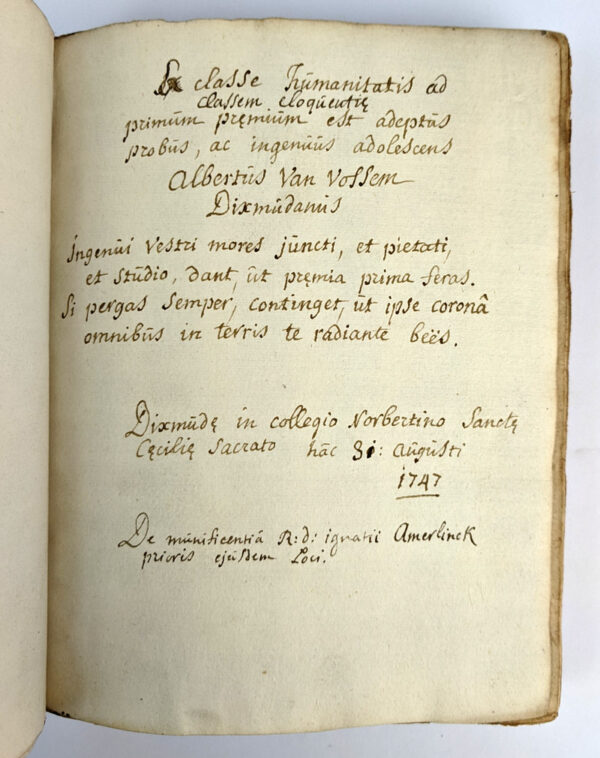 Ex classe hūmanitatis ad
classem eloqūentię
primūm pręmiūm est adeptūs
probūs, ac ingenūūs adolescens
Albertūs Van Vossem
Dixmūdanūs
Ingenūi vestri mores jūncti, et pietati,
et stūdio, dant, ūt pręmia prima feras.
Si pergas semper, continget, ūt ipse coronâ
omnibūs in terris te radiante beës.
Dixmūdę in collegio Norbertino Sanctę
Cęcilię Sacrato hāc 31: aūgūsti
1747
De mūnificentiâ R: d: ignatii Amerlinck
prioris ejūsdem Loci.